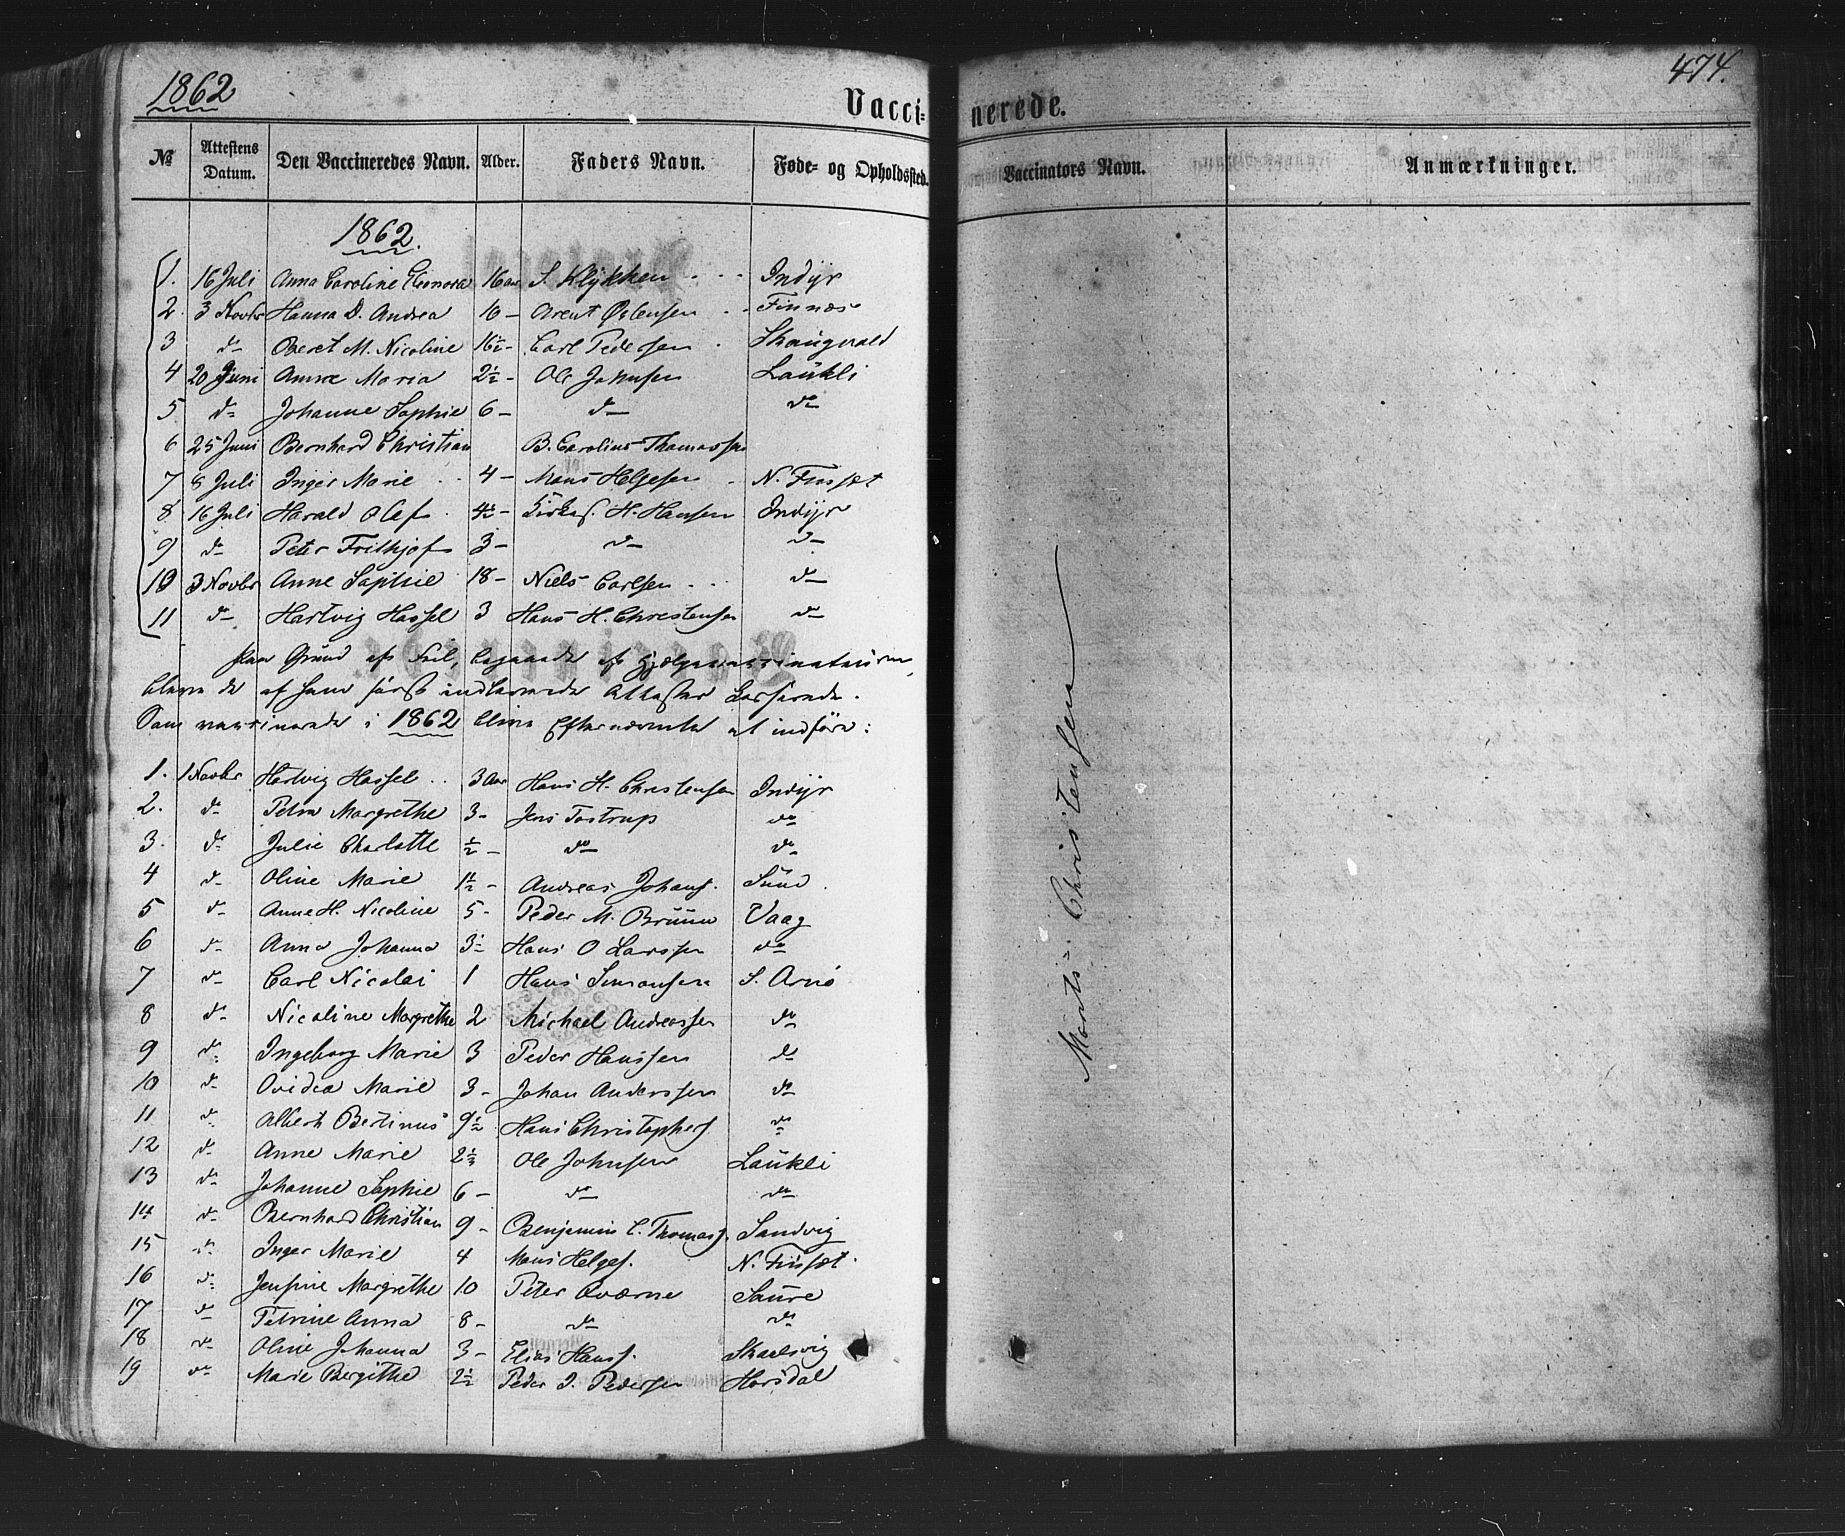 1862
474.
Vacci-
nerede.
№ Attestens Datum. Den Vaccineredes Navn. Alder. Faders Navn. Føde- og Opholdssted.
Vaccinators Navn. Anmærkninger.
1862.
1. 16 Juli Anna Caroline Eleonora 16 aar S. Klykken Indyr
2. 3 Novbr Hanna D. Andrea 10 - Arent Østensen Finnæs
3 do Beret M. Nicoline 16½ - Carl Pedersen Skaugvold
4 20 Juni Anne Maria 2½ - Ole Johnsen Laukli
5 do Johanne Sophie 6 - do do
6 25 Juni Bernhard Christian B. Carolius Thomassen
7 8 Juli Inger Marie 4 - Mons Helgesen N. Finsæt
8 16 Juli Harald Olaf 4½ - Kirkes. H. Hansen Indyr
9 do Peter Frithjof 3 - do do
10 3 Novbr Anne Sophie 18 - Niels Carlsen do
11 do Hartvig Hassel 3 Hans H. Christensen do
Paa Grund af Feil, begaaede af Hjælpevaccinateuren,
bleve de af ham først indleverede Attester kasserede.
Som vaccinerede i 1862 blive Efternævnte at indføre:
1. 1 Novbr Hartvig Hassel 3 Aar Hans H. Christensen Indyr
2. do Petra Margrethe 3 - Jens Tostrup do
3. do Julie Charlotte ½ - do do
4 do Oline Marie 1½ - Andreas Johans. Sund
5 do Anne H. Nicoline 5 - Peder M. Bruun Vaag
6 do Anna Johanna 3½ Hans O Larssen do
7 do Carl Nicolai 1 Hans Simonsen S. Arnø
8 do Nicoline Margrethe 2 Michael Andreassen do
9 do Ingeborg Marie 3 Peder Hanssen do
10 do Ovidea Marie 3 - Johan Anderssen do
11 do Albert Bertinus 9½ Hans Christophers do
12 do Anne Marie 2½ Ole Johnsen Laukli
13 do Johanne Sophie 6 - do do
14 do Bernhard Christian 9 - Benjamin C. Thomas. Sandvig
15 do Inger Marie 4 Mons Helges. N. Finsæt
16 do Jensine Margrethe 10 Peter Qværne Saure
17 do Petrine Anna 8 - do do
18 do Oline Johanna 3 - Elias Hans. Skaelsvig
19 do Marie Bergithe 2½ Peder J. Pedersen Horsdal
Morits Christensen